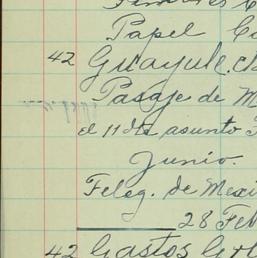 Papel
42 Guayule.
Pasaje de M
el 11 de asunto
Junio.
Teleg. de Mexi
28 Feb
42 Gastos